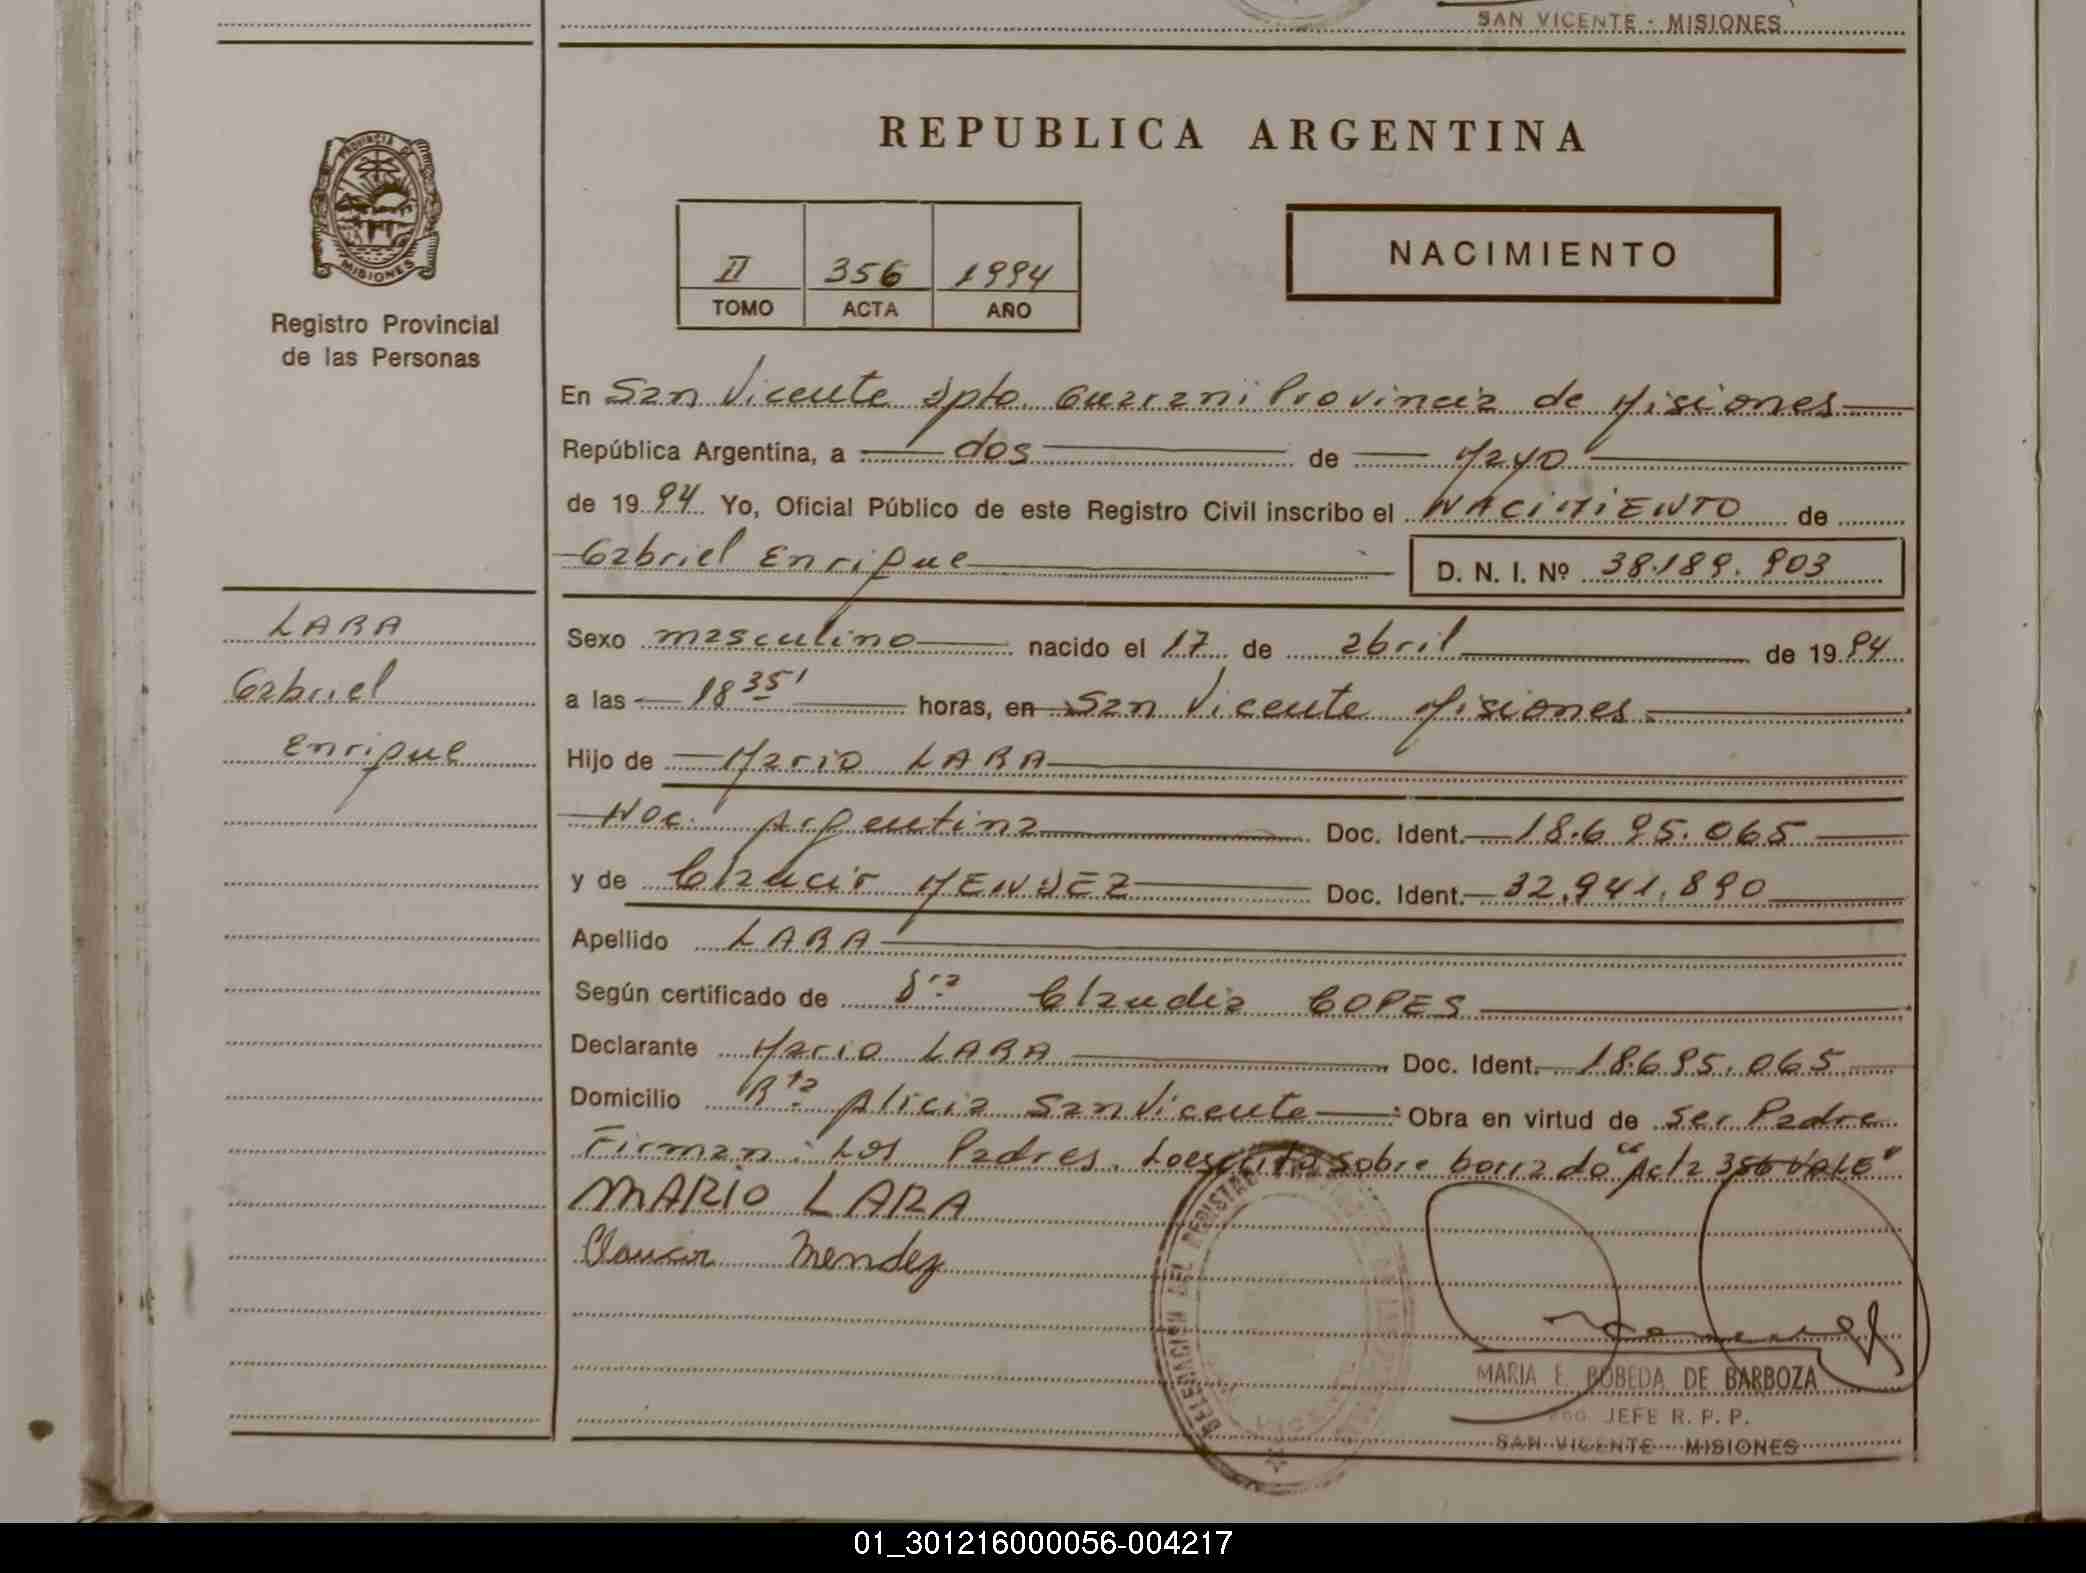 SAN VICENTE - MISIONES
REPUBLICA ARGENTINA
PROVINCIA DE
MISIONES
Registro Provincial
de las Personas
II 356 1994
TOMO ACTA AÑO
NACIMIENTO
En San Vicente Dpto. Guarani Provincia de Misiones
República Argentina, a dos de Mayo
de 1994 Yo, Oficial Público de este Registro Civil inscribo el NACIMIENTO de
Gabriel Enrique D. N. I. Nº 38.189.903
LARA
Gabriel
Enrique
Sexo masculino nacido el 17 de abril de 1994
a las 18 35' horas, en San Vicente Misiones
Hijo de Mario LARA
Nac. Argentina Doc. Ident. 18.695.065
y de Claucir MENDEZ Doc. Ident. 32.941.890
Apellido LARA
Según certificado de Dra Claudia COPES
Declarante Mario LARA Doc. Ident. 18.695.065
Domicilio Rta Alicia San Vicente Obra en virtud de ser Padre
Firman: Los Padres. Lo escrito sobre borrado "Acta 356 VALE"
MARIO LARA
Claucir Mendez
DELEGACION DEL REGISTRO
MARIA E. BOBEDA DE BARBOZA
JEFE R. P. P.
SAN VICENTE - MISIONES
01_301216000056-004217